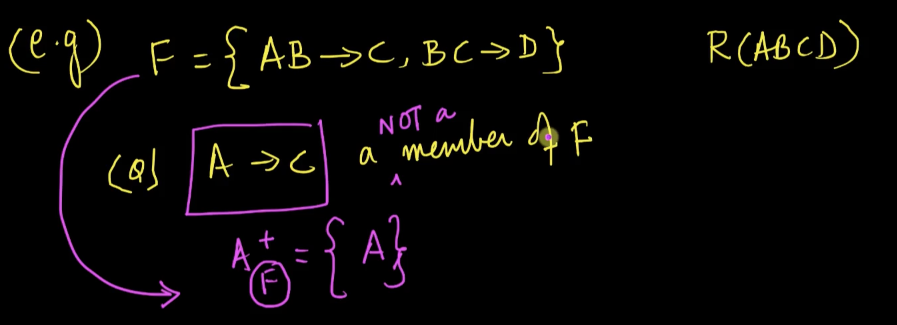 (e.g) F = { AB → C, BC → D } R(ABCD)
NOT a
(Q) A → C a ^ member of F
A⁺F = { A }